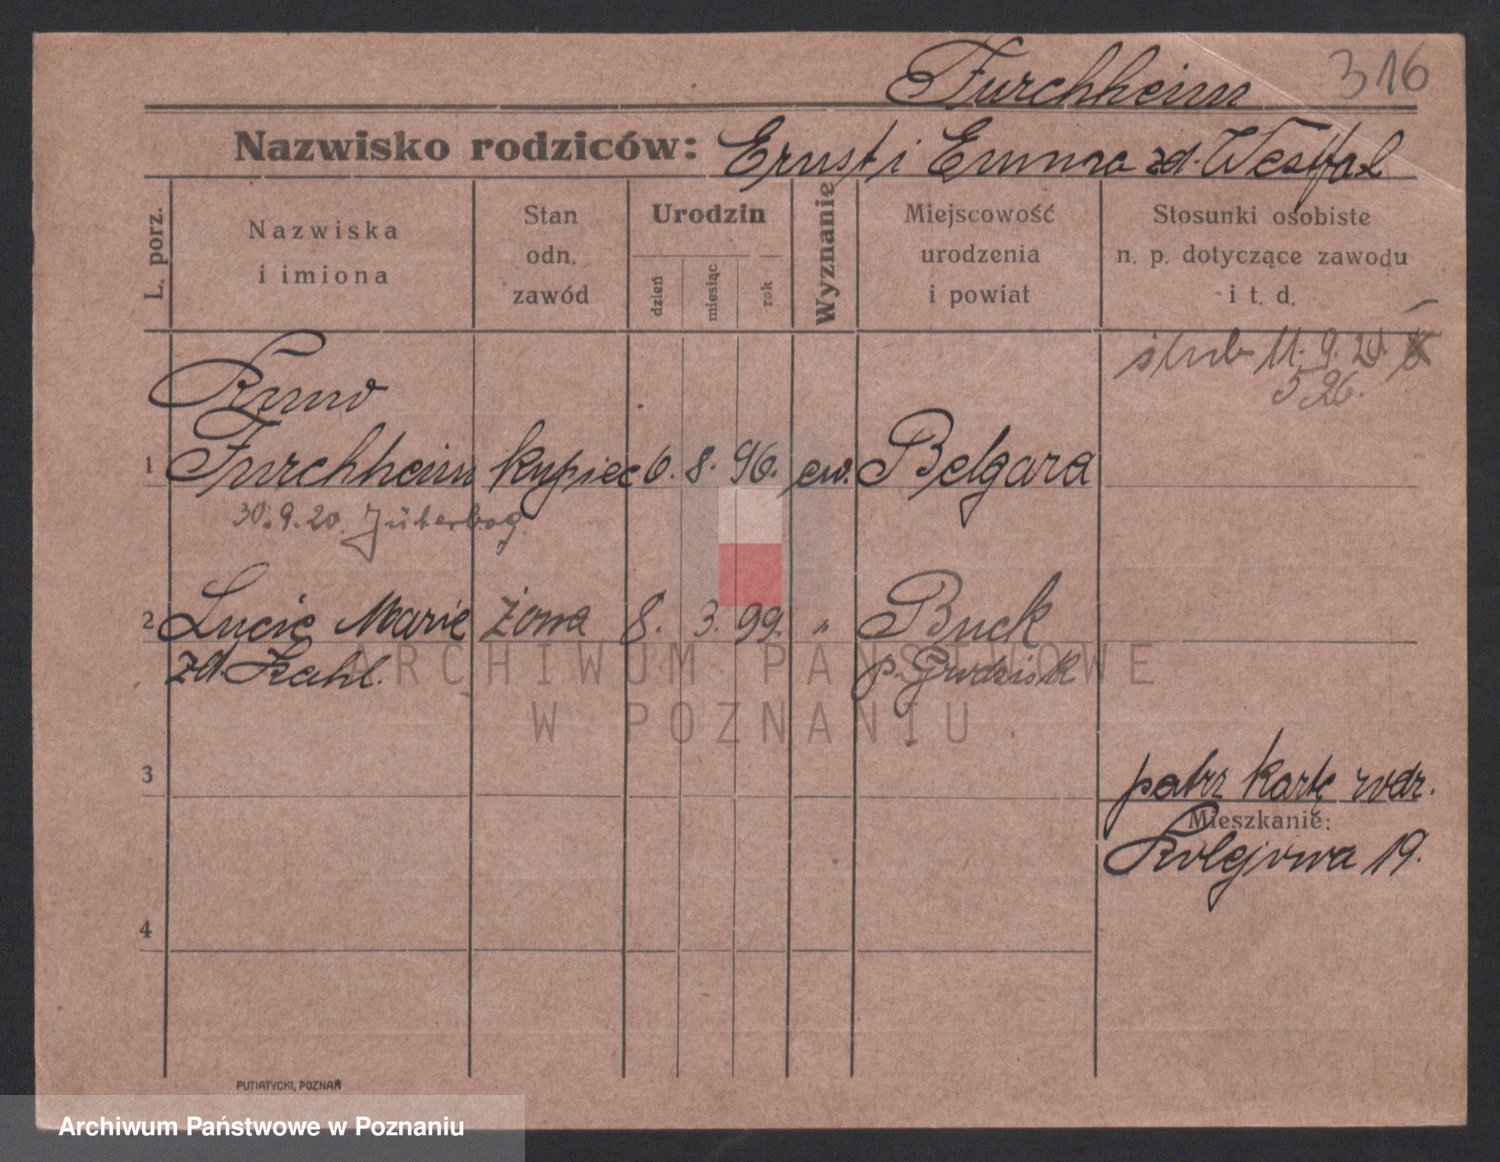 316
Furchheim
Nazwisko rodziców: Ernst i Emma zd. Westfal
L. porz.
Nazwiska
i imiona
Stan
odn.
zawód
Urodzin
dzień
miesiąc
rok
Wyznanie
Miejscowość
urodzenia
i powiat
Stosunki osobiste
n. p. dotyczące zawodu
i t. d.
ślub 11. 9. 20.
5 26.
Kuno
1 Furchheim kupiec 6. 8. 96. ew. Belgara
30. 9. 20. Jüterbog.
2 Lucie Marie żona 8. 3. 99. " Buck
zd. Kahl. p. Grodzisk
ARCHIWUM PAŃSTWOWE
W POZNANIU
3
patrz kartę wdr.
Mieszkanie:
Kolejowa 19.
4
PUTIATYCKI, POZNAŃ
Archiwum Państwowe w Poznaniu